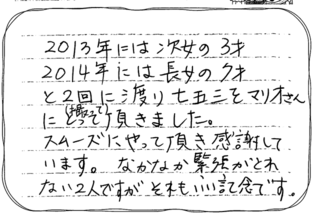 2013年には次女の3才
2014年には長女の7才
と2回に渡り七五三をマリオさん
に撮って頂きました。
スムーズにやって頂き感謝して
います。なかなか緊張がとれ
ない2人ですがそれもいい記念です。